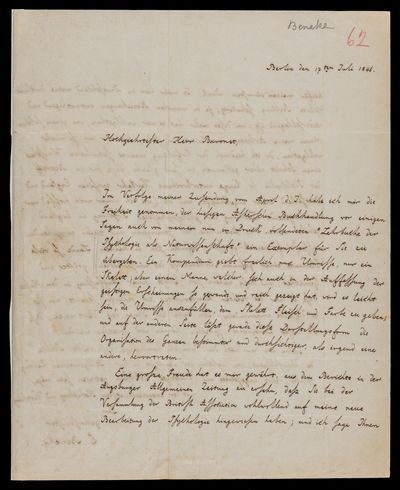 Beneke
62
Berlin den 17ten Juli 1845.
Hochgeehrtester Herr Baronet,
Im Verfolge meiner Zusendung vom April d. J. habe ich mir die
Freiheit genommen, der hiesigen Asherschen Buchhandlung vor einigen
Tagen auch von meinem nun im Druck vollendeten "Lehrbuche der
Psychologie als Naturwissenschaft" ein Exemplar für Sie zu
übergeben. Ein Kompendium giebt freilich nur Umrisse, nur ein
Skelett; aber einem Manne welcher sich auch in der Auffassung der
geistigen Erscheinungen so gewandt und reich gezeigt hat, wird es leicht
sein, die Umrisse auszufüllen, dem Skelett Fleisch und Farbe zu geben;
und auf der anderen Seite läßt gerade diese Darstellungsform die
Organisation des Ganzen bestimmter und durchsichtiger, als irgend eine
andere, hervortreten.
Eine große Freude hat es mir gewährt, aus dem Berichte in der
Augsburger Allgemeinen Zeitung zu ersehn, daß Sie bei der
Versammlung der British Association wohlwollend auf meine neue
Bearbeitung der Psychologie hingewiesen haben; und ich sage Ihnen